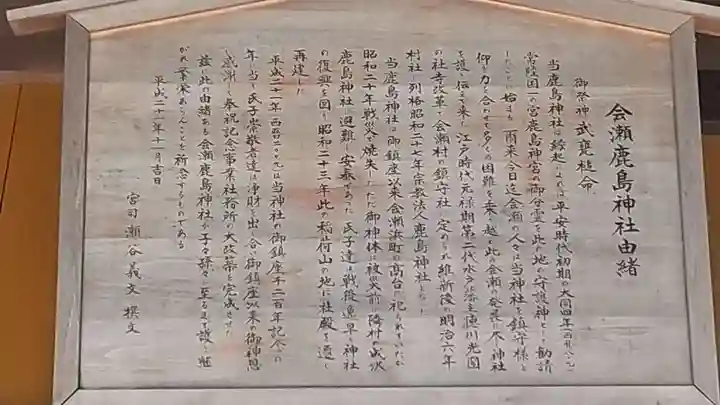 会瀬鹿島神社由緒
御祭神 武甕槌命
当鹿島神社は縁起によれば平安時代初期の大同四年(西暦八〇九)
常陸国一の宮鹿島神宮の御分霊を此の地の守護神として勧請
したことに始まる 爾来今日迄会瀬の人々は当神社を鎮守様と
仰ぎ力を合わせて多くの困難を乗り越え此の会瀬の発展に尽し神社
を護り伝えて来た 江戸時代元禄期第二代水戸藩主徳川光圀
の社寺改革で会瀬村の鎮守社と定められ維新後の明治六年
村社に列格昭和二十七年宗教法人鹿島神社となる
当鹿島神社は御鎮座以来会瀬浜町の高台に祀られていたが
昭和二十年戦災で焼失 ただ御神体は被災前に隣村の成沢
鹿島神社に避難し安泰であった 氏子達は戦後逸早く神社
の復興を図り昭和二十三年此の稲荷山の地に社殿を遷し
再建した
平成二十一年(西暦二〇〇九)は当神社の御鎮座千二百年記念の
年に当り氏子崇敬者達は浄財を出し合い御鎮座以来の御神恩
に感謝し奉祝記念事業社務所の大改築を完成させた
茲に此の由緒ある会瀬鹿島神社が子々孫々に至るまで護り継
がれ繁栄あらんことを祈念するものである
平成二十一年十一月吉日
宮司 瀬谷義文 撰文